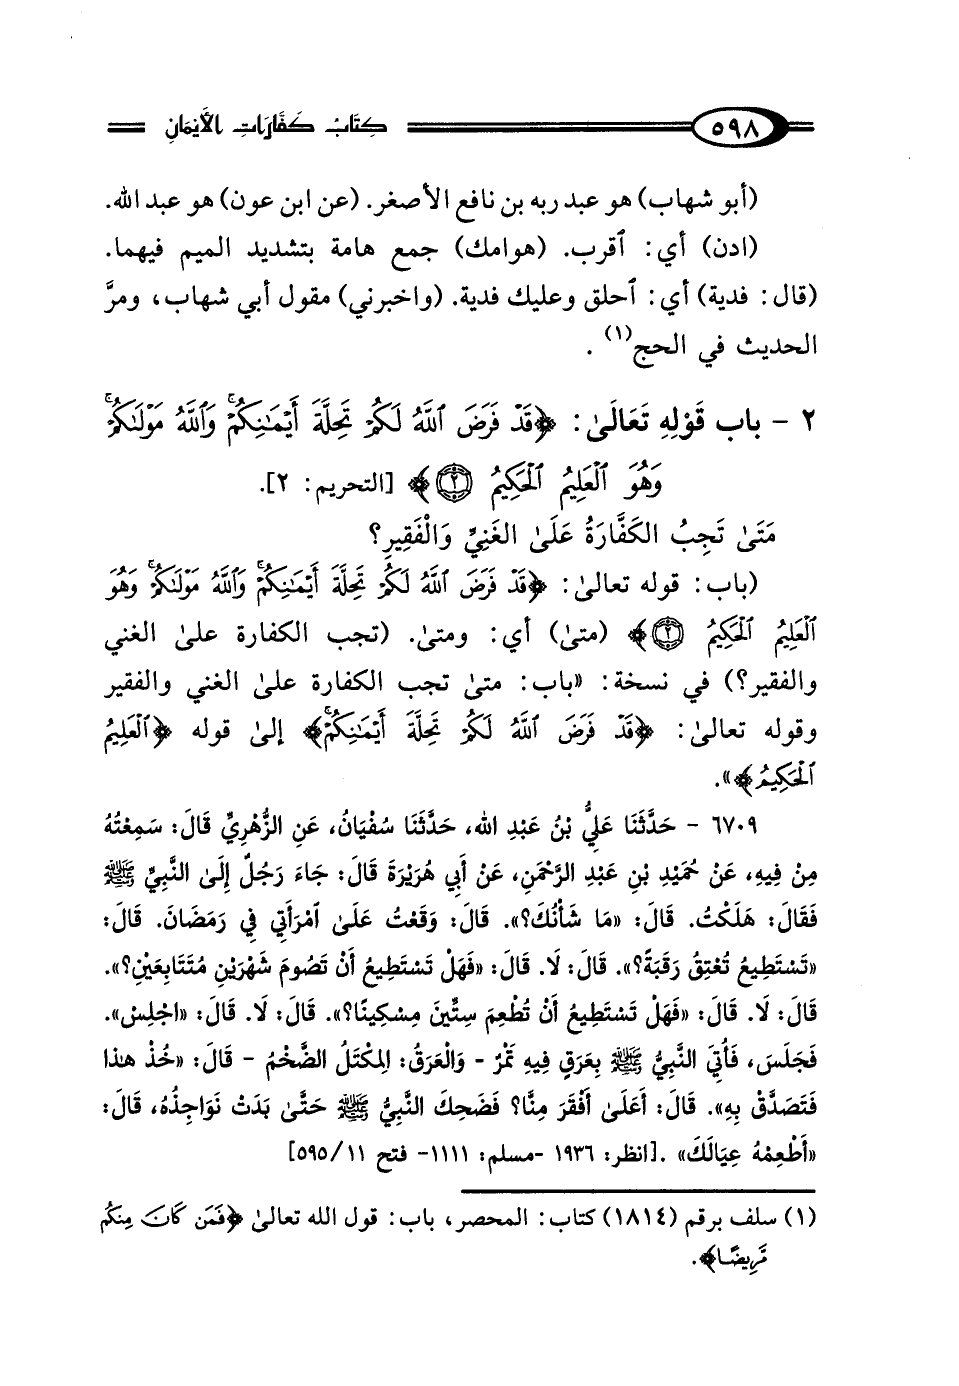 ٥٩٨ كِتَابُ كَفَّارَاتِ الأَيْمَانِ
(أبو شهاب) هو عبد ربه بن نافع الأصغر. (عن ابن عون) هو عبد الله.
(ادن) أي: ٱقرب. (هوامك) جمع هامة بتشديد الميم فيهما.
(قال: فدية) أي: ٱحلق وعليك فدية. (واخبرني) مقول أبي شهاب، ومرَّ
الحديث في الحج(١) .
٢ - باب قَوْلِهِ تَعَالَىٰ: ﴿قَدْ فَرَضَ ٱللَّهُ لَكُمْ تَحِلَّةَ أَيْمَـٰنِكُمْ ۚ وَٱللَّهُ مَوْلَىٰكُمْ ۚ
وَهُوَ ٱلْعَلِيمُ ٱلْحَكِيمُ ٢﴾ [التحريم: ٢].
مَتَىٰ تَجِبُ الكَفَّارَةُ عَلَىٰ الغَنِيِّ وَالْفَقِيرِ؟
(باب: قوله تعالىٰ: ﴿قَدْ فَرَضَ ٱللَّهُ لَكُمْ تَحِلَّةَ أَيْمَـٰنِكُمْ ۚ وَٱللَّهُ مَوْلَىٰكُمْ ۚ وَهُوَ
ٱلْعَلِيمُ ٱلْحَكِيمُ ٢﴾ (متىٰ) أي: ومتىٰ. (تجب الكفارة علىٰ الغني
والفقير؟) في نسخة: «باب: متىٰ تجب الكفارة علىٰ الغني والفقير
وقوله تعالىٰ: ﴿قَدْ فَرَضَ ٱللَّهُ لَكُمْ تَحِلَّةَ أَيْمَـٰنِكُمْ ۚ﴾ إلىٰ قوله ﴿ٱلْعَلِيمُ
ٱلْحَكِيمُ﴾».
٦٧٠٩ - حَدَّثَنَا عَلِيُّ بْنُ عَبْدِ الله، حَدَّثَنَا سُفْيَانُ، عَنِ الزُّهْرِيِّ قَالَ: سَمِعْتُهُ
مِنْ فِيهِ، عَنْ حُمَيْدِ بْنِ عَبْدِ الرَّحْمَنِ، عَنْ أَبِي هُرَيْرَةَ قَالَ: جَاءَ رَجُلٌ إِلَىٰ النَّبِيِّ ﷺ
فَقَالَ: هَلَكْتُ. قَالَ: «مَا شَأْنُكَ؟». قَالَ: وَقَعْتُ عَلَىٰ ٱمْرَأَتِي فِي رَمَضَانَ. قَالَ:
«تَسْتَطِيعُ تُعْتِقُ رَقَبَةً؟». قَالَ: لَا. قَالَ: «فَهَلْ تَسْتَطِيعُ أَنْ تَصُومَ شَهْرَيْنِ مُتَتَابِعَيْنِ؟».
قَالَ: لَا. قَالَ: «فَهَلْ تَسْتَطِيعُ أَنْ تُطْعِمَ سِتِّينَ مِسْكِينًا؟». قَالَ: لَا. قَالَ: «اجْلِسْ».
فَجَلَسَ، فَأُتِيَ النَّبِيُّ ﷺ بِعَرَقٍ فِيهِ تَمْرٌ - وَالْعَرَقُ: المِكْتَلُ الضَّخْمُ - قَالَ: «خُذْ هٰذا
فَتَصَدَّقْ بِهِ». قَالَ: أَعَلَىٰ أَفْقَرَ مِنَّا؟ فَضَحِكَ النَّبِيُّ ﷺ حَتَّىٰ بَدَتْ نَوَاجِذُهُ، قَالَ:
«أَطْعِمْهُ عِيَالَكَ» .[انظر: ١٩٣٦ -مسلم: ١١١١- فتح ١١/ ٥٩٥]
(١) سلف برقم (١٨١٤) كتاب: المحصر، باب: قول الله تعالىٰ ﴿فَمَن كَانَ مِنكُم
مَّرِيضًا﴾.